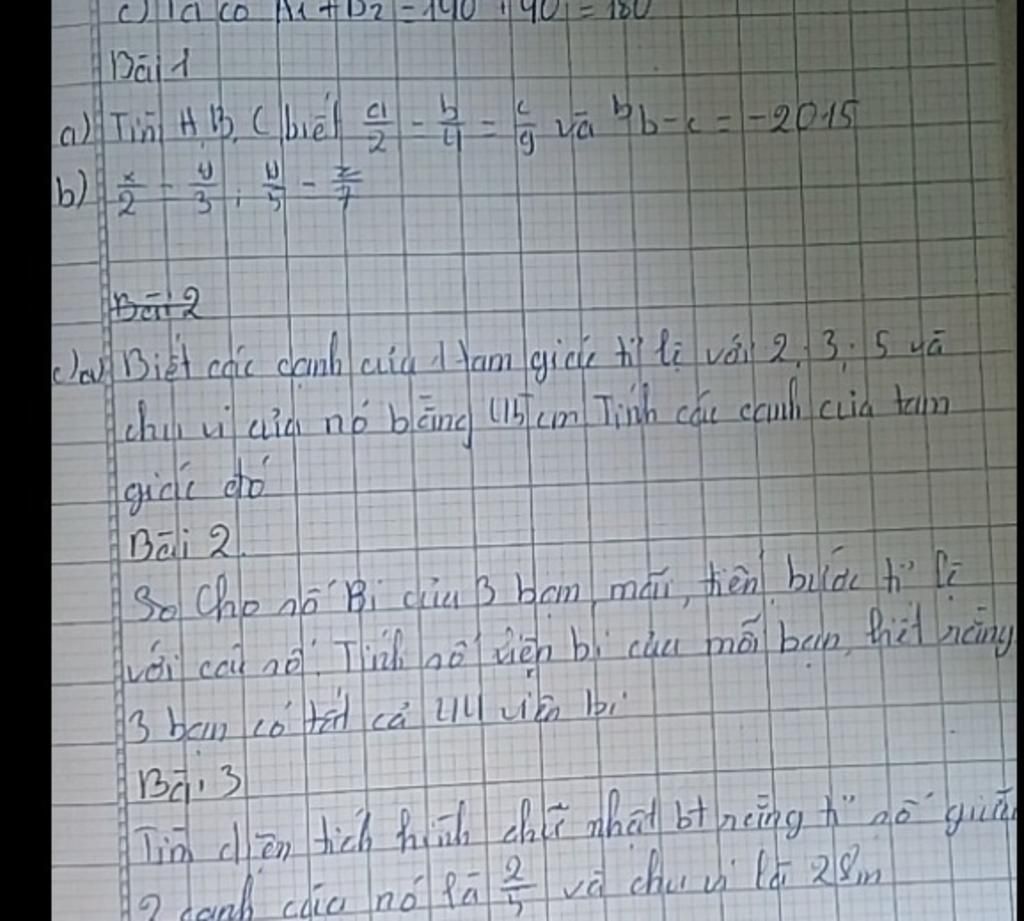 c) Ta có A1 + B2 = 140 + 40 = 180
Bài 1
a) Tìm A, B, C biết a/2 = b/4 = c/9 và b - c = -2015
b) x/2 = y/3 ; y/5 = z/7
Bài 2
c) Biết các cạnh của 1 tam giác tỉ lệ với 2; 3; 5 và
chu vi của nó bằng cm Tính các cạnh của tam
giác đó
Bài 2
Số Bi của 3 bạn tỉ lệ
với các số. Tính số viên bi của mỗi bạn, biết rằng
3 bạn có tất cả 44 viên bi
Bài 3
Tìm diện tích hình chữ nhật bt rằng tỉ số giữa
2 cạnh của nó là 2/5 và chu vi là 28m